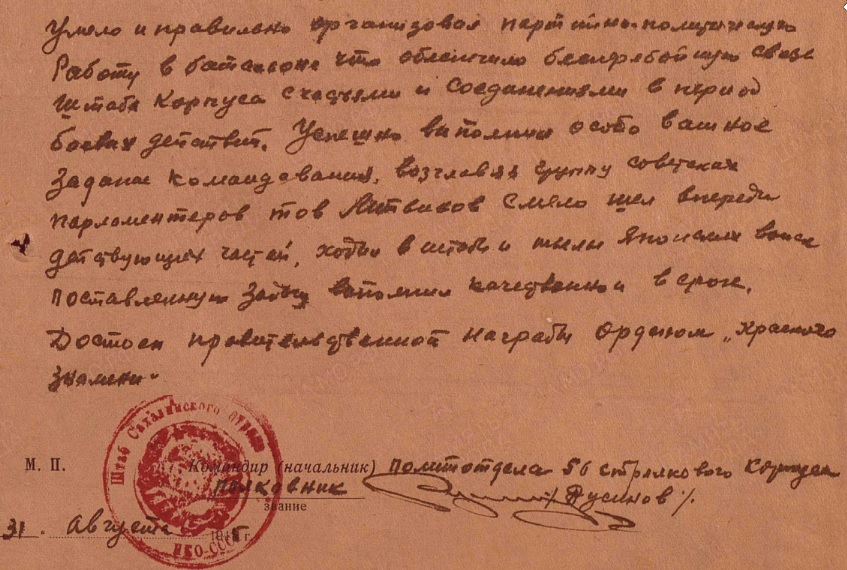 Умело и правильно организовал партийно-политическую
Работу в батальоне что обеспечило бесперебойную связь
Штаба Корпуса с частями и соединениями в период
боевых действий. Успешно выполнил особо важное
задание командования, возглавляя группу советских
парламентеров тов Литвинов смело шел впереди
действующих частей, ходил в штабы и тылы Японских войск
поставленную задачу выполнил качественно и в срок.
Достоен правительственной награды Орденом „Красного
знамени".
Штаб Сахалинского
НКО-СССР
М. П. Командир (начальник) политотдела 56 стрелкового Корпуса
Полковник /Пусинов/.
звание
31. Августа 1945 г.